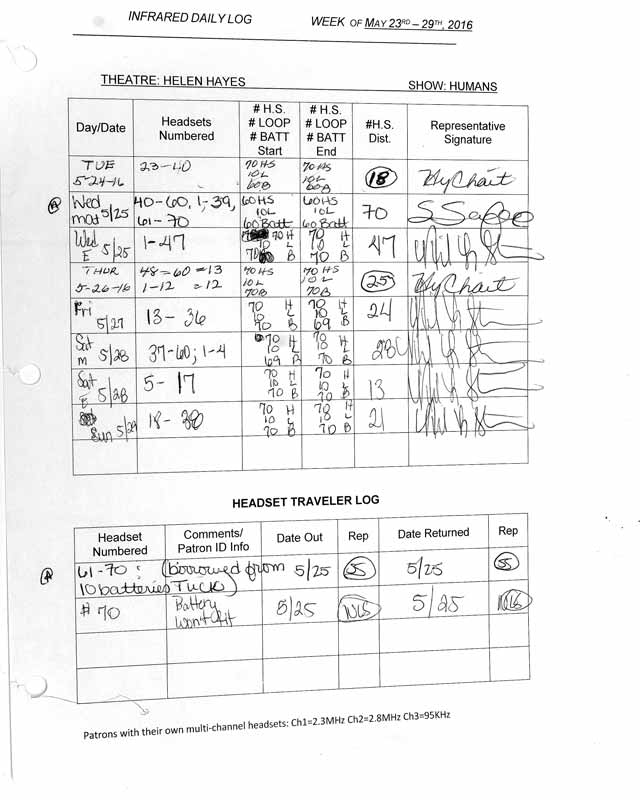 INFRARED DAILY LOG WEEK OF MAY 23RD – 29TH, 2016
THEATRE: HELEN HAYES SHOW: HUMANS
Day/Date Headsets Numbered # H.S. # LOOP # BATT Start # H.S. # LOOP # BATT End #H.S. Dist. Representative Signature
TUE 5-24-16 23-40 70 HS 10L 60B 70HS 10L 60B 18
A Wed mat 5/25 40-60, 1-39, 61-70 60HS 10L 60 Batt 60HS 10L 60 Batt 70
Wed E 5/25 1-47 70 H 10 L 70 B 70 H 10 L 70 B 47
THUR 5-26-16 48-60 = 13 1-12 = 12 70 HS 10L 70B 70 HS 10L 70B 25
Fri 5/27 13-36 70 H 10 L 70 B 70 H 10 L 69 B 24
Sat m 5/28 37-60; 1-4 70 H 10 L 69 B 70 H 10 L 70 B 28
Sat E 5/28 5-17 70 H 10 L 70 B 70 H 10 L 70 B 13
Sun 5/29 18-38 70 H 10 L 70 B 70 H 10 L 70 B 21
HEADSET TRAVELER LOG
Headset Numbered Comments/ Patron ID Info Date Out Rep Date Returned Rep
A 61-70: (borrowed from 5/25 SS 5/25 SS
10 batteries Tuck)
# 70 Battery Won't fit 5/25 5/25
Patrons with their own multi-channel headsets: Ch1=2.3MHz Ch2=2.8MHz Ch3=95KHz